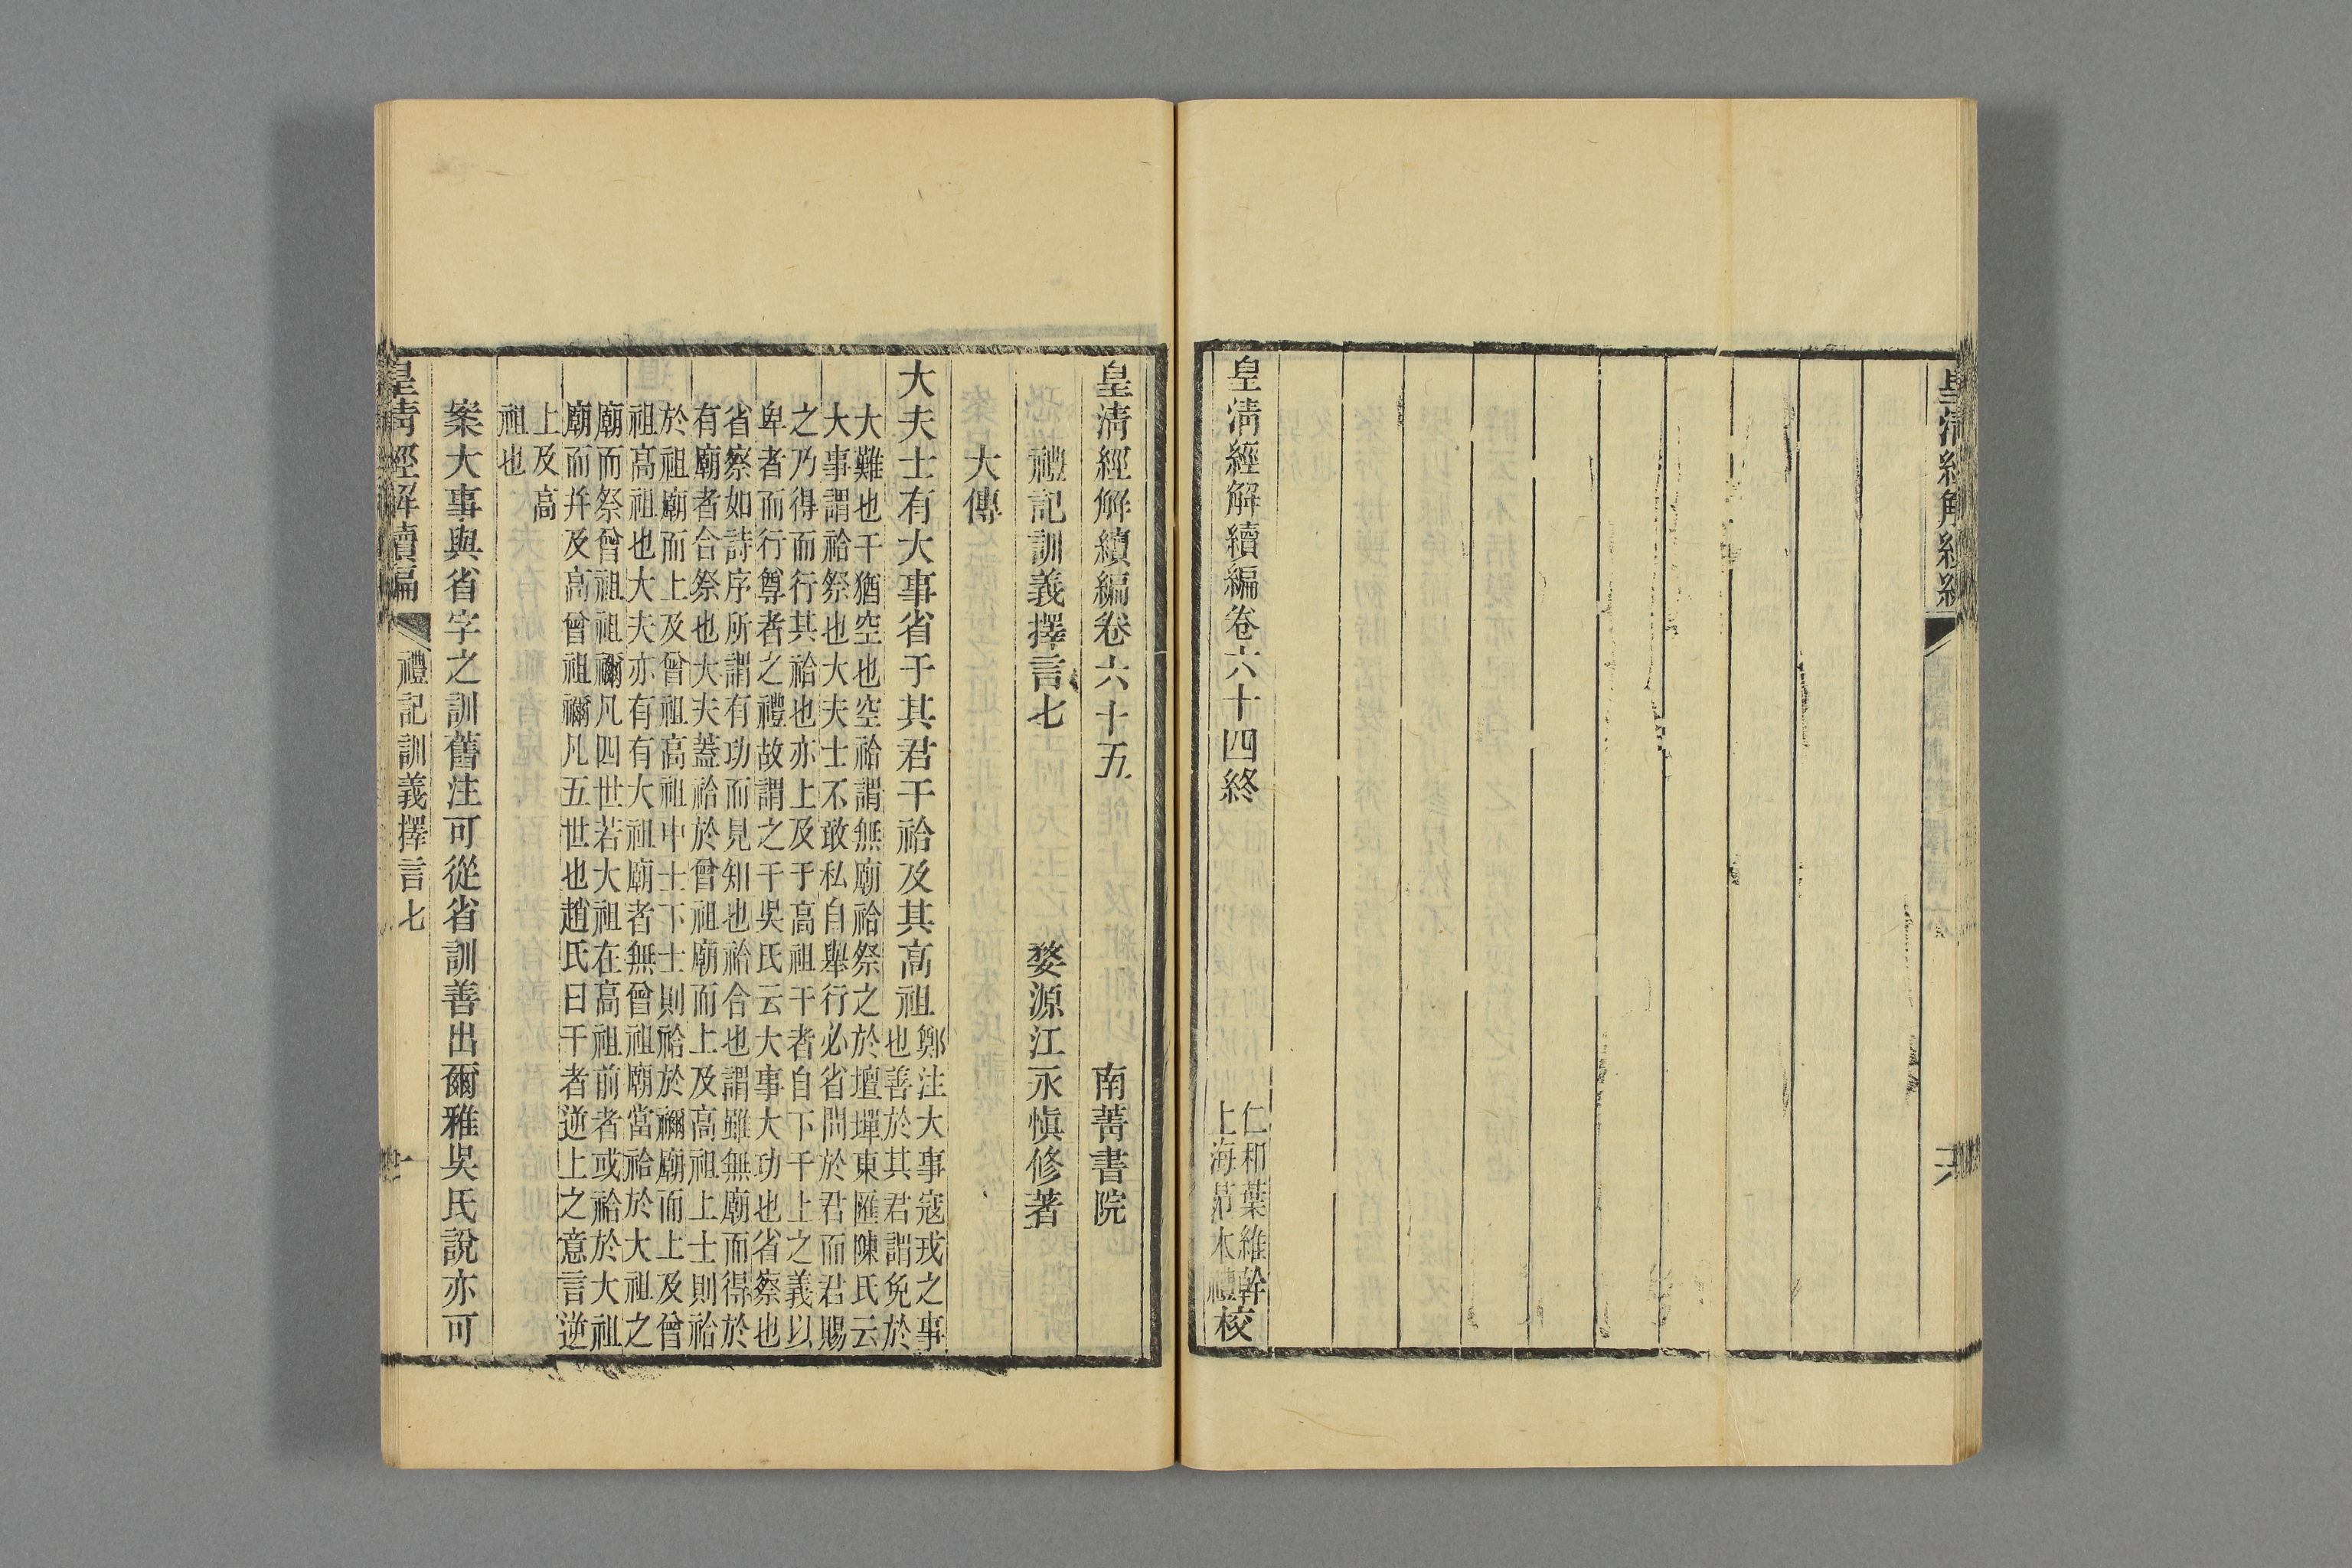 皇清經解續編
皇清經解續編卷六十四終
仁和葉維幹
上海范本禮
校
皇清經解續編卷六十五
南菁書院
禮記訓義擇言七
婺源江永慎修著
大傳
大夫士有大事省于其君干祫及其高祖
鄭注大事寇戎之事
也善於其君謂免於
大難也干猶空也空祫謂無廟祫祭之於壇墠東匯陳氏云
大事謂祫祭也大夫士不敢私自舉行必省問於君而君賜
之乃得而行其祫也亦上及于高祖干者自下干上之義以
卑者而行尊者之禮故謂之干吳氏云大事大功也省察也
省察如詩序所謂有功而見知也祫合也謂雖無廟而得於
有廟者合祭也大夫蓋祫於曾祖廟而上及高祖上士則祫
於祖廟而上及曾祖高祖中士下士則祫於禰廟而上及曾
祖高祖也大夫亦有有大祖廟者無曾祖廟當祫於大祖之
廟而祭曾祖祖禰凡四世若大祖在高祖前者或祫於大祖
廟而并及高曾祖禰凡五世也趙氏曰干者逆上之意言逆
上及高
祖也
案大事與省字之訓舊注可從省訓善出爾雅吳氏說亦可
皇清經解續編
禮記訓義擇言七
一